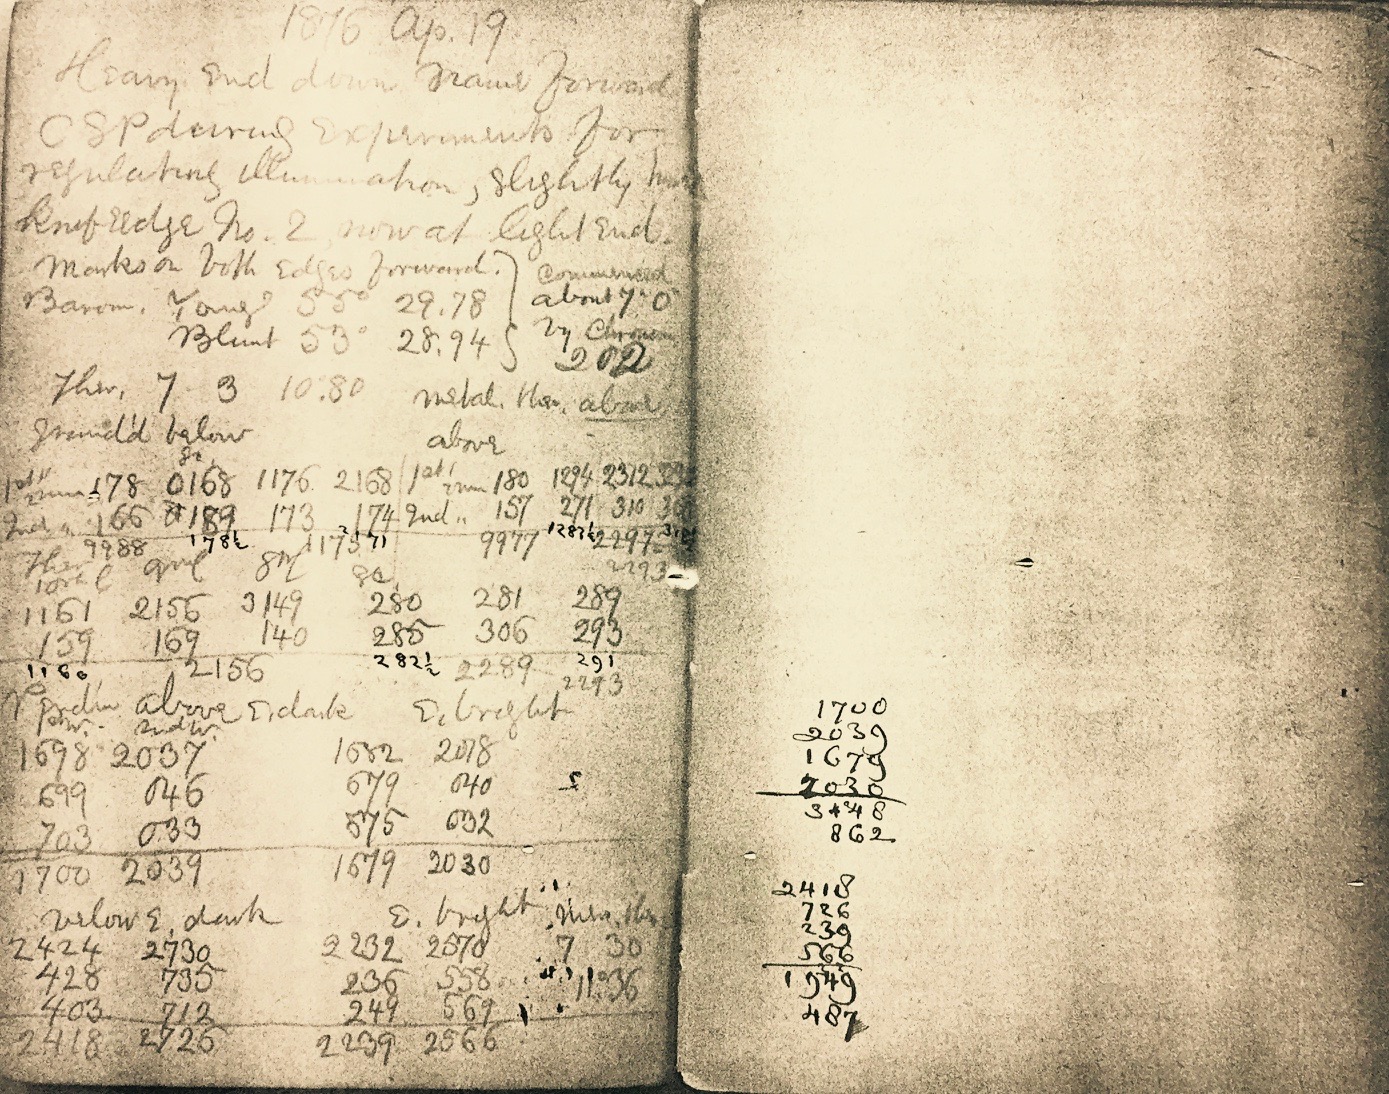 1876 Ap. 19
Heavy End down Name forward
CSP during Experiments for
regulating illumination, slightly
Knife Edge No. 2 now at light End.
Marks on both Edges forward.
Commenced
Barom. Young 55° 29.78
about 7h 0
Blunt 53° 28.94
by Chron
202
Ther. 7 3 10.80 metal. ther. above
below above
1st 178 0168 1176 2168 1st 180 1294 2312
2nd „ 166 189 173 174 2nd „ 157 271 310
9988 178½ 1175 171 9977 1282½ 2297
2293
Ther
1161 2156 3149 280 281 289
159 169 140 285 306 293
1160 2156 282½ 2289 291
2293
above E. dark E. bright
1698 2037 1682 2018
699 046 679 040
703 033 675 032
1700 2039 1679 2030
below E. dark E. bright
2424 2730 2232 2570 7 30
428 735 236 558 11.36
403 712 249 569
2418 2726 2239 2566
1700
2039
1679
2030
3448
862
2418
726
239
566
1949
487